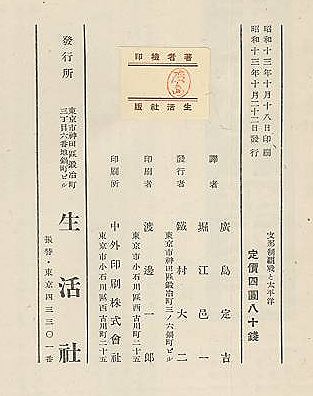 昭和十三年十月十八日印刷
昭和十三年十月二十二日發行
太平洋
定價四圓八十錢
譯者
廣島定吉
堀江邑一
發行者
鐵村大二
東京市神田區鍛冶町三ノ六鍋町ビル
印刷者
渡邊一郎
東京市小石川區西古川町二十五
印刷所
中外印刷株式會社
東京市小石川區西古川町二十五
發行所
東京市神田區鍛冶町
三丁目六番地鍋町ビル
生活社
振替・東京四三三〇一番
著者檢印
生活社版